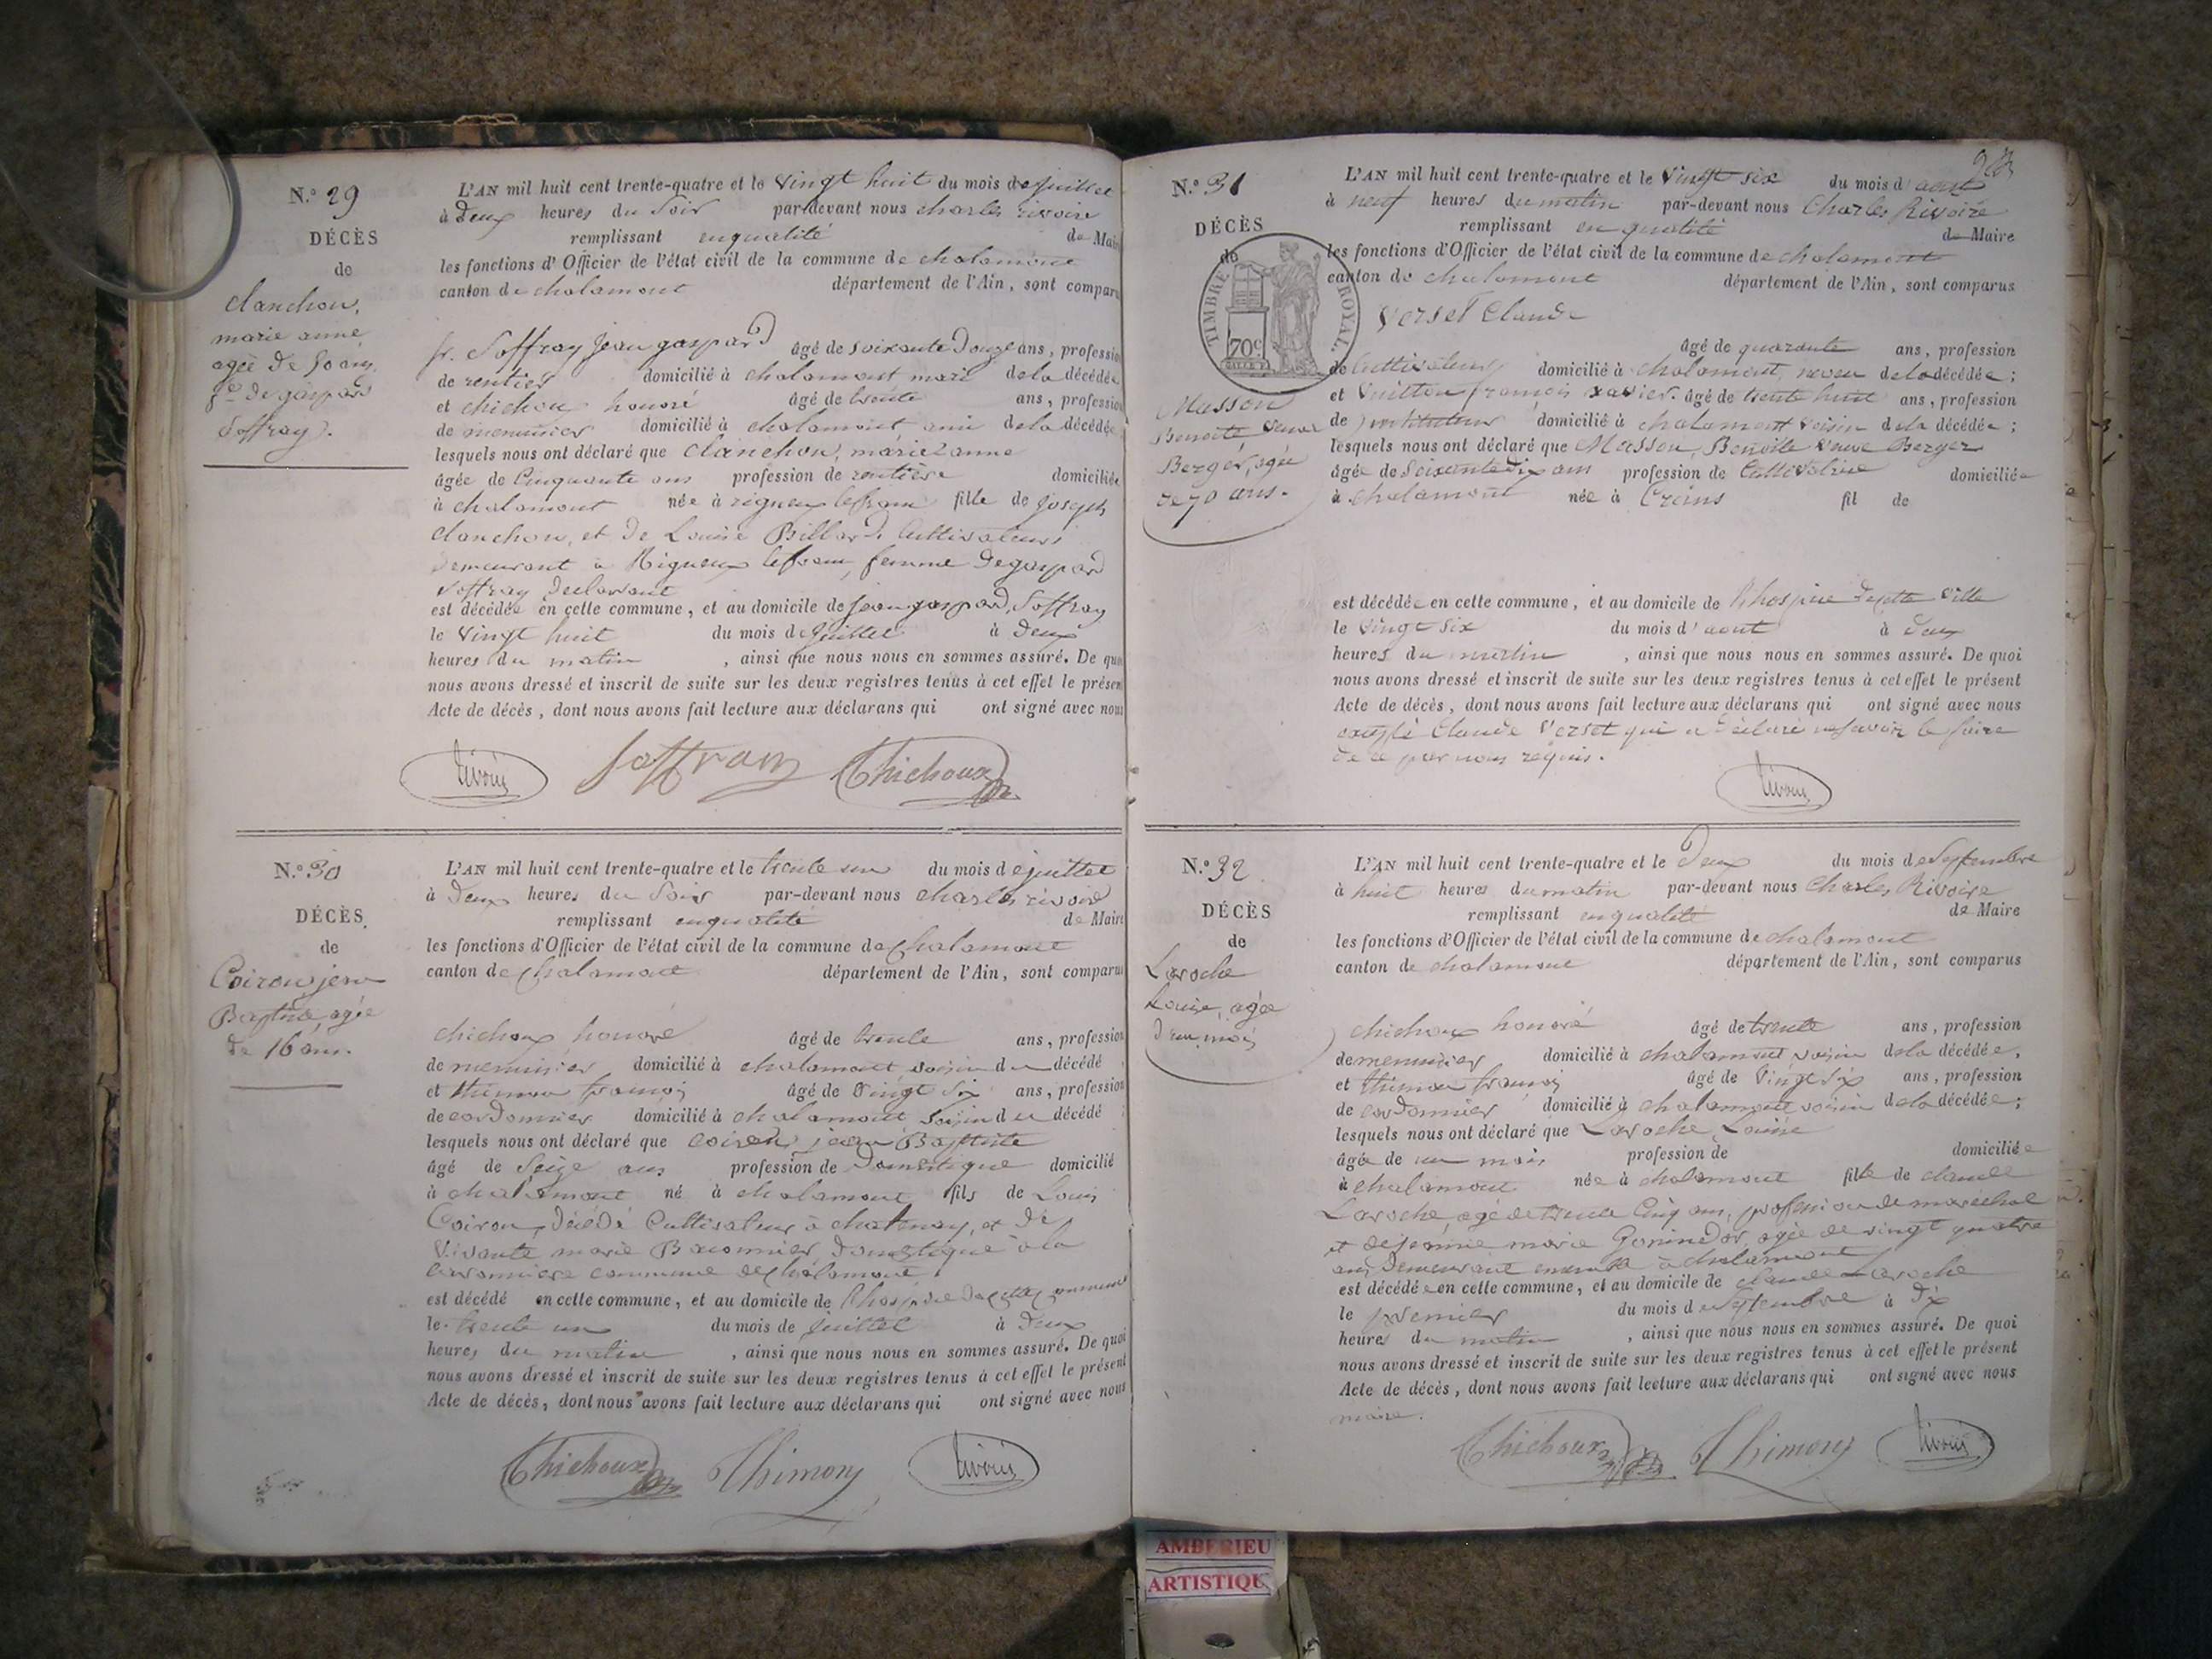 N.° 29
DÉCÈS
de
Clanchon,
marie anne,
agée de 50 ans,
fe de gaspard
Soffray.
L'AN mil huit cent trente-quatre et le vingt huit du mois de juillet
à deux heures du soir par-devant nous charles rivoire
remplissant en qualité de Maire
les fonctions d'Officier de l'état civil de la commune de chalamont
canton de chalamont département de l'Ain, sont comparus
Soffray jean gaspard âgé de soixante douze ans, profession
de rentier domicilié à chalamont mari de la décédée
et chichoux honoré âgé de trente ans, profession
de menuisier domicilié à chalamont ami de la décédée
lesquels nous ont déclaré que Clanchon, marie anne
âgée de Cinquante ans profession de rentière domiciliée
à chalamont née à rigneux lefranc fille de joseph
Clanchon, et de Louise Billard, Cultivateurs
demeurant à Rigneux lefranc, femme de gaspard
Soffray declarant
est décédée en cette commune, et au domicile de jean gaspard, Soffray
le vingt huit du mois de juillet à deux
heures du matin , ainsi que nous nous en sommes assuré. De quoi
nous avons dressé et inscrit de suite sur les deux registres tenus à cet effet le présent
Acte de décès, dont nous avons fait lecture aux déclarans qui ont signé avec nous
Rivoire Soffray Chichoux
N.° 30
DÉCÈS.
de
Coiron jean
Baptiste, agée
de 16 ans.
L'AN mil huit cent trente-quatre et le trente un du mois de juillet
à deux heures du soir par-devant nous charles rivoire
remplissant en qualité de Maire
les fonctions d'Officier de l'état civil de la commune de chalamont
canton de chalamont département de l'Ain, sont comparus
chichoux honoré âgé de trente ans, profession
de menuisier domicilié à chalamont voisin du décédé
et thimon françois âgé de vingt six ans, profession
de cordonnier domicilié à chalamont voisin du décédé
lesquels nous ont déclaré que coiron jean Baptiste
âgé de Seize ans profession de domestique domicilié
à chalamont né à chalamont fils de Louis
Coiron, décédé Cultivateur à chatenay, et de
vivante marie domestique à la
commune de chalamont
est décédé en cette commune, et au domicile de l'hospice de cette commune
le trente un du mois de juillet à deux
heures du matin , ainsi que nous nous en sommes assuré. De quoi
nous avons dressé et inscrit de suite sur les deux registres tenus à cet effet le présent
Acte de décès, dont nous avons fait lecture aux déclarans qui ont signé avec nous
Chichoux Thimon Rivoire
N.° 31
DÉCÈS
de
TIMBRE ROYAL.
70c
Masson
Benoite veuve
Berger, agée
de 70 ans.
L'AN mil huit cent trente-quatre et le vingt six du mois d'aout
à neuf heures du matin par-devant nous Charles Rivoire
remplissant en qualité de Maire
les fonctions d'Officier de l'état civil de la commune de chalamont
canton de chalamont département de l'Ain, sont comparus
Verset Claude
âgé de quarante ans, profession
de Cultivateur domicilié à chalamont, neveu de la décédée;
et Vuitton françois xavier. âgé de trente huit ans, profession
de instituteur domicilié à chalamont voisin de la décédée;
lesquels nous ont déclaré que Masson, Benoite veuve Berger
âgée de Soixante dix ans profession de Cultivatrice domiciliée
à chalamont née à Crans fil de
est décédée en cette commune, et au domicile de l'hospice de cette ville
le vingt six du mois d'aout à deux
heures du matin , ainsi que nous nous en sommes assuré. De quoi
nous avons dressé et inscrit de suite sur les deux registres tenus à cet effet le présent
Acte de décès, dont nous avons fait lecture aux déclarans qui ont signé avec nous
excepté Claude Verset qui a déclaré ne savoir le faire
de ce par nous requis.
Rivoire
N.° 32
DÉCÈS
de
Laroche
Louise, agée
d'un mois
L'AN mil huit cent trente-quatre et le Deux du mois de Septembre
à huit heures du matin par-devant nous Charles Rivoire
remplissant en qualité de Maire
les fonctions d'Officier de l'état civil de la commune de chalamont
canton de chalamont département de l'Ain, sont comparus
chichoux honoré âgé de trente ans, profession
de menuisier domicilié à chalamont voisin de la décédée,
et thimon françois âgé de vingt six ans, profession
de cordonnier domicilié à chalamont voisin de la décédée;
lesquels nous ont déclaré que Laroche, Louise
âgée de un mois profession de domiciliée
à chalamont née à chalamont fille de claude
Laroche, agé de trente Cinq ans, profession de marechal
et de jeannie marie agée de vingt quatre
ans, demeurant ensemble à chalamont
est décédée en cette commune, et au domicile de claude Laroche
le premier du mois de Septembre à dix
heures du matin , ainsi que nous nous en sommes assuré. De quoi
nous avons dressé et inscrit de suite sur les deux registres tenus à cet effet le présent
Acte de décès, dont nous avons fait lecture aux déclarans qui ont signé avec nous
maire.
Chichoux Thimon Rivoire
AMBERIEU
ARTISTIQU